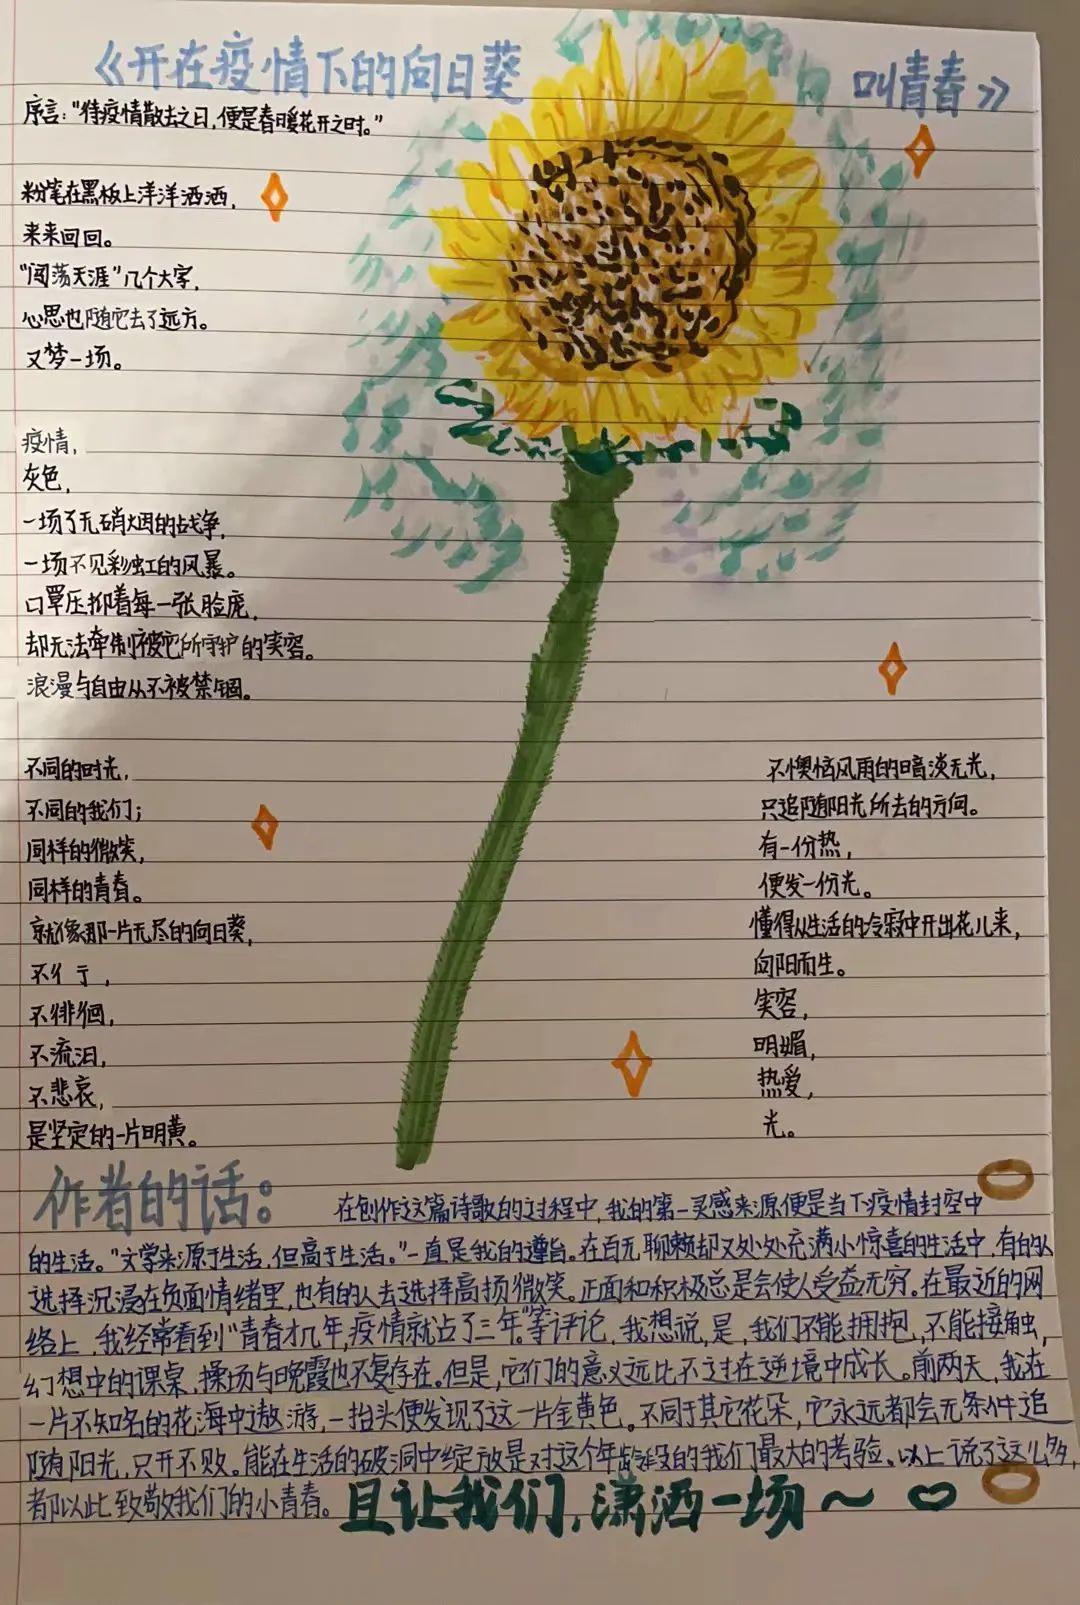 《开在疫情下的向日葵 叫青春》
序言：“待疫情散去之日，便是春暖花开之时。”
粉笔在黑板上洋洋洒洒，
来来回回。
“闯荡天涯”几个大字，
心思也随它去了远方。
又梦一场。
疫情，
灰色，
一场了无硝烟的战争，
一场不见彩虹的风暴。
口罩压抑着每一张脸庞，
却无法牵制被它所守护的笑容。
浪漫与自由从不被禁锢。
不同的时光，
不同的我们；
同样的微笑，
同样的青春。
就像那一片无尽的向日葵，
不彳亍，
不徘徊，
不流泪，
不悲哀，
是坚定的一片明黄。
不懊恼风雨的暗淡无光，
只追随阳光所去的方向。
有一份热，
便发一份光。
懂得从生活的冷寂中开出花儿来，
向阳而生。
笑容，
明媚，
热爱，
光。
作者的话：
在创作这篇诗歌的过程中，我的第一灵感来源便是当下疫情封空中
的生活。“文学来源于生活，但高于生活。”一直是我的遵旨。在百无聊赖却又处处充满小惊喜的生活中，有的人
选择沉浸在负面情绪里，也有的人去选择高扬微笑。正面和积极总是会使人受益无穷。在最近的网
络上，我经常看到“青春才几年，疫情就占了三年”等评论，我想说，是，我们不能拥抱，不能接触，
幻想中的课桌，操场与晚霞也不复存在。但是，它们的意义远比不过在逆境中成长。前两天，我在
一片不知名的花海中遨游，一抬头便发现了这一片金黄色。不同于其它花朵，它永远都会无条件追
随阳光，只开不败。能在生活的破洞中绽放是对这个年龄段的我们最大的考验。以上说了这么多，
都以此致敬我们的小青春。
且让我们，潇洒一场～